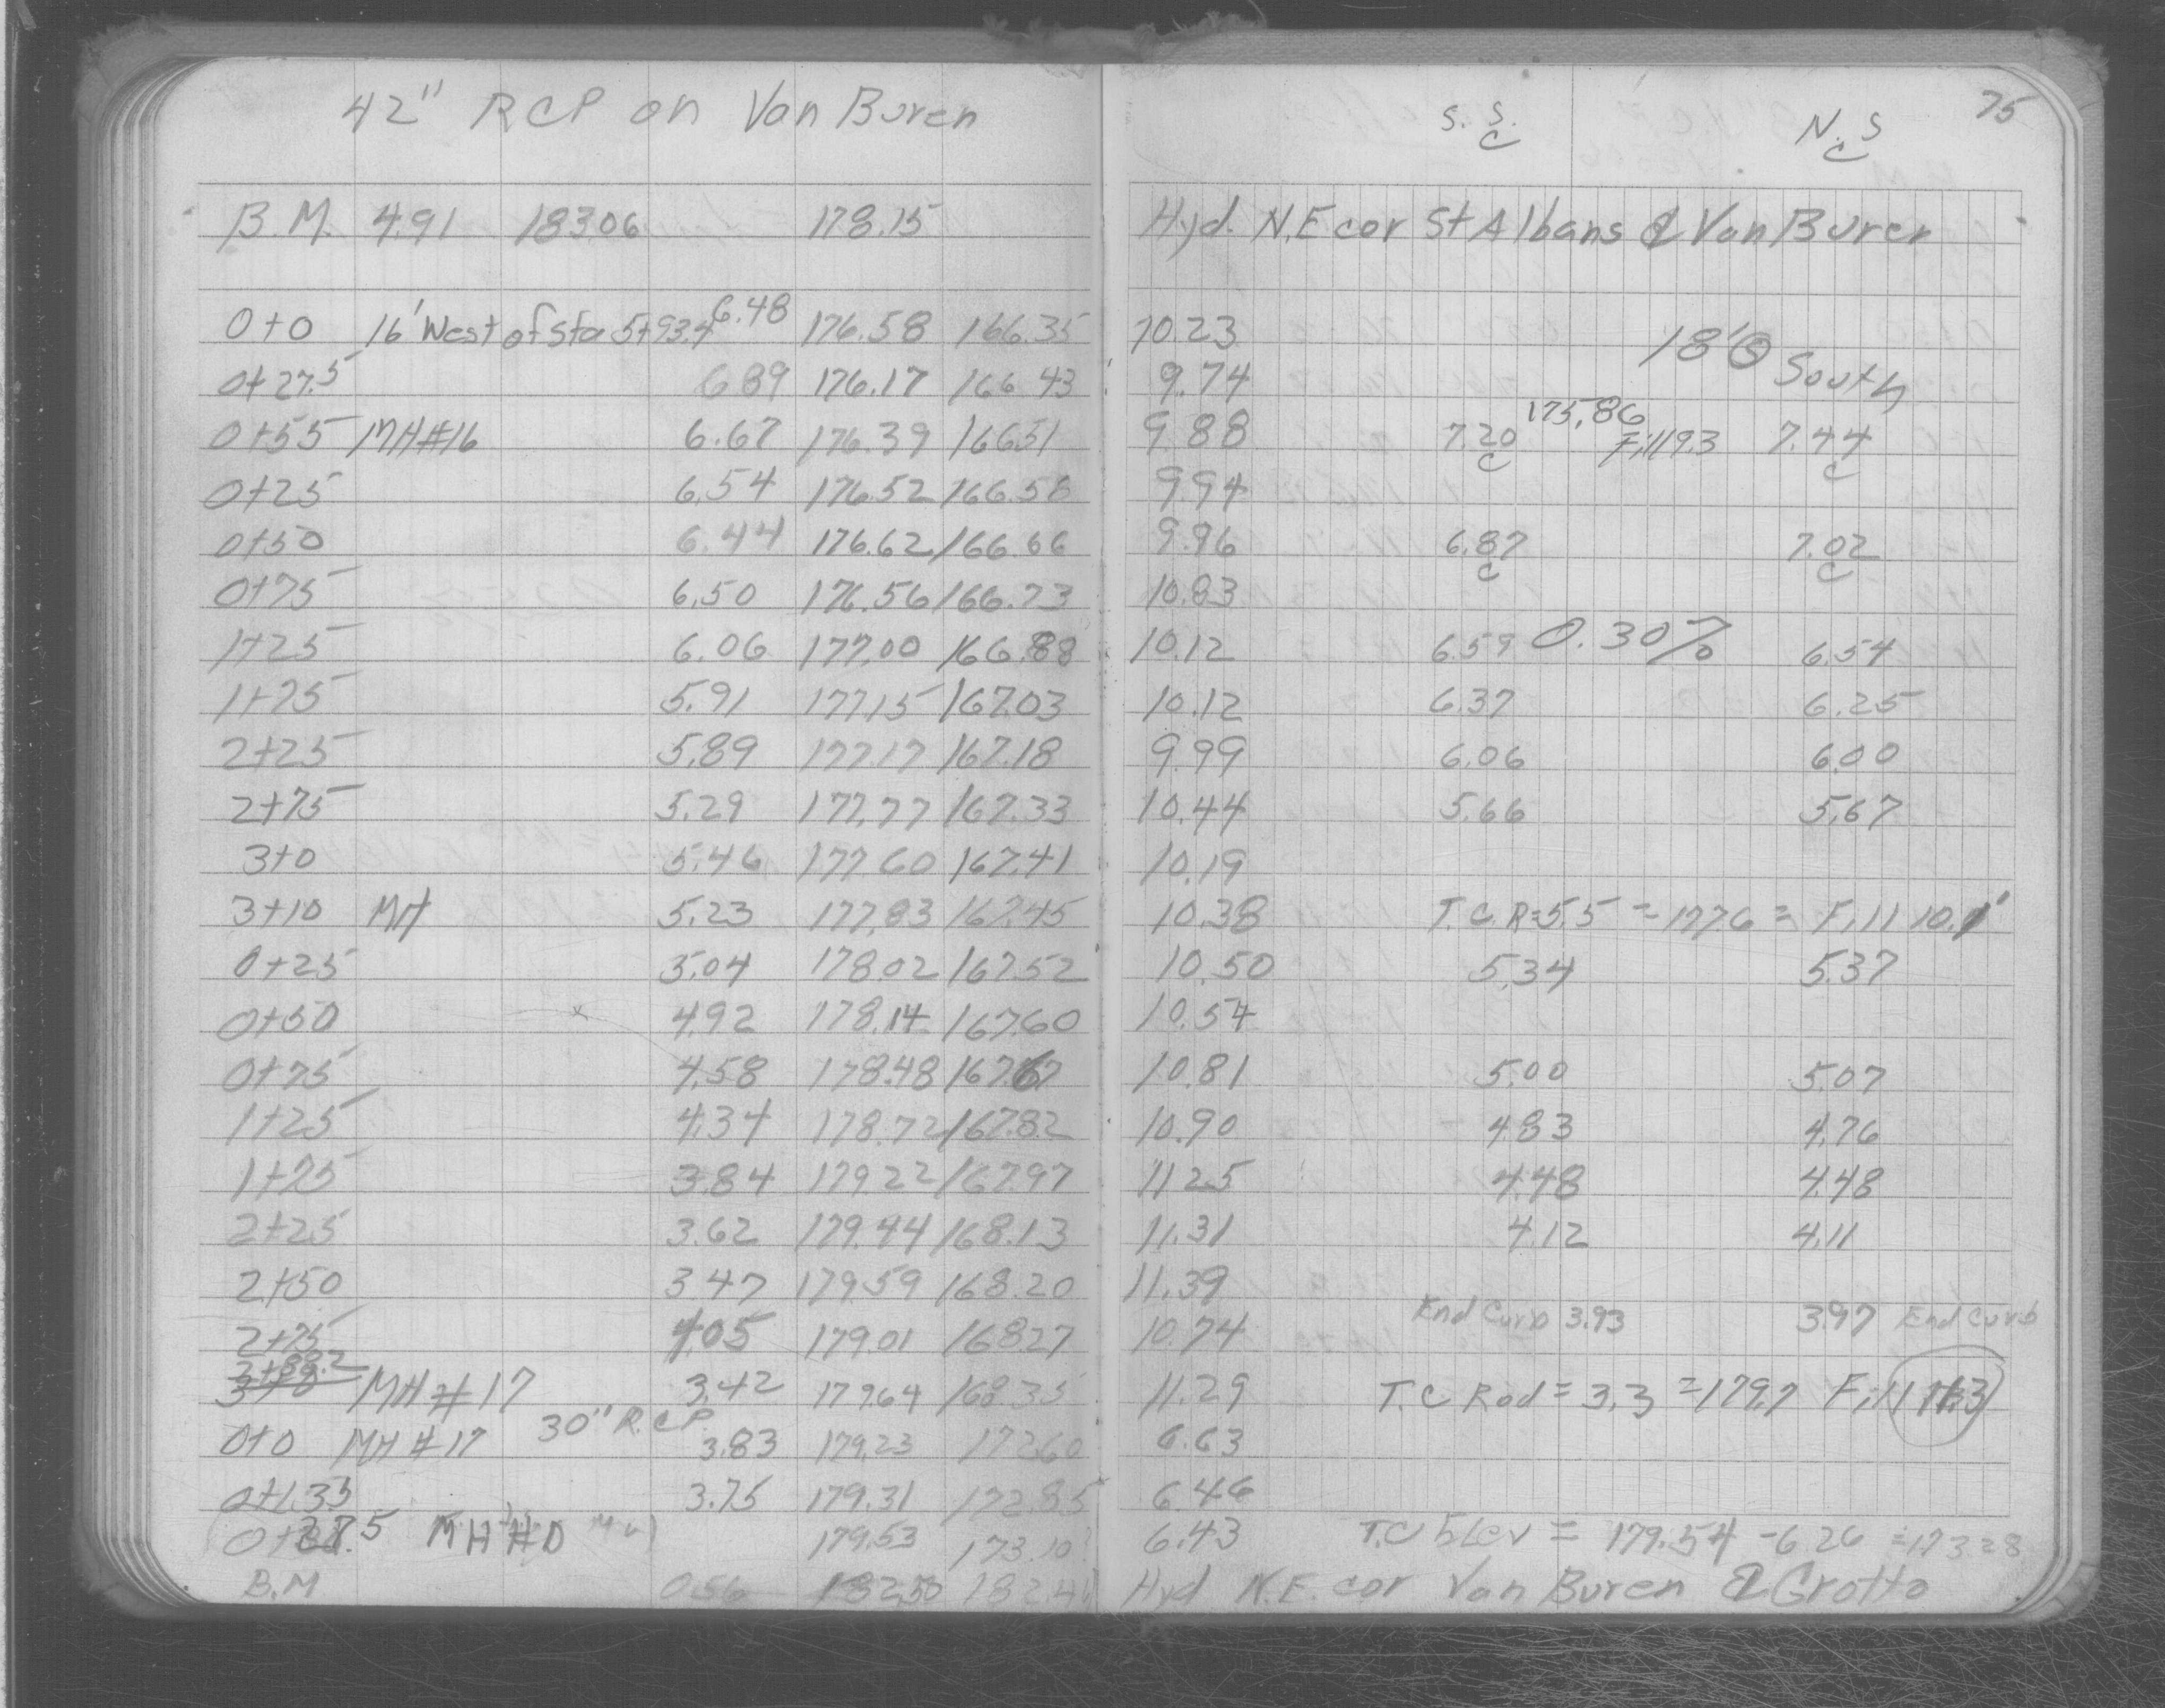 42" RCP on Van Buren
S.S. C N.S C 75
B.M. 4.91 183.06 178.15 Hyd. N.E cor St Albans & Van Buren
0+0 16' West of Sta 5+93.4 6.48 176.58 166.35 10.23
18' South
0+27.5 6.89 176.17 166.43 9.74
175.86
0+55 MH#16 6.67 176.39 166.51 9.88 7.20 C Fill 9.3 7.44 C
0+25 6.54 176.52 166.58 9.94
0+50 6.44 176.62 166.66 9.96 6.87 C 7.02 C
0+75 6.50 176.56 166.73 10.83
1+25 6.06 177.00 166.88 10.12 6.59 0.30% 6.54
1+75 5.91 177.15 167.03 10.12 6.37 6.25
2+25 5.89 177.17 167.18 9.99 6.06 6.00
2+75 5.29 177.77 167.33 10.44 5.66 5.67
3+0 5.46 177.60 167.41 10.19
3+10 MH 5.23 177.83 167.45 10.38 T.C. R=5.5 = 177.6 = Fill 10.1'
0+25 5.04 178.02 167.52 10.50 5.34 5.37
0+50 4.92 178.14 167.60 10.54
0+75 4.58 178.48 167.67 10.81 5.00 5.07
1+25 4.34 178.72 167.82 10.90 4.83 4.76
1+75 3.84 179.22 167.97 11.25 4.48 4.48
2+25 3.62 179.44 168.13 11.31 4.12 4.11
2+50 3.47 179.59 168.20 11.39
End Curb 3.93 3.97 End Curb
2+75 4.05 179.01 168.27 10.74
2+88.2
3+0 MH#17 3.42 179.64 168.35 11.29 T.C Rod = 3.3 = 179.7 Fill 11.3
0+0 MH#17 30" R.C.P. 3.83 179.23 172.60 6.63
0+1.35 3.75 179.31 172.85 6.46
37.5 MH#D 179.53 173.10 6.43 T.C Elev = 179.54 - 6.26 = 173.28
B.M 0.56 182.50 Hyd N.E. cor Van Buren & Grotto